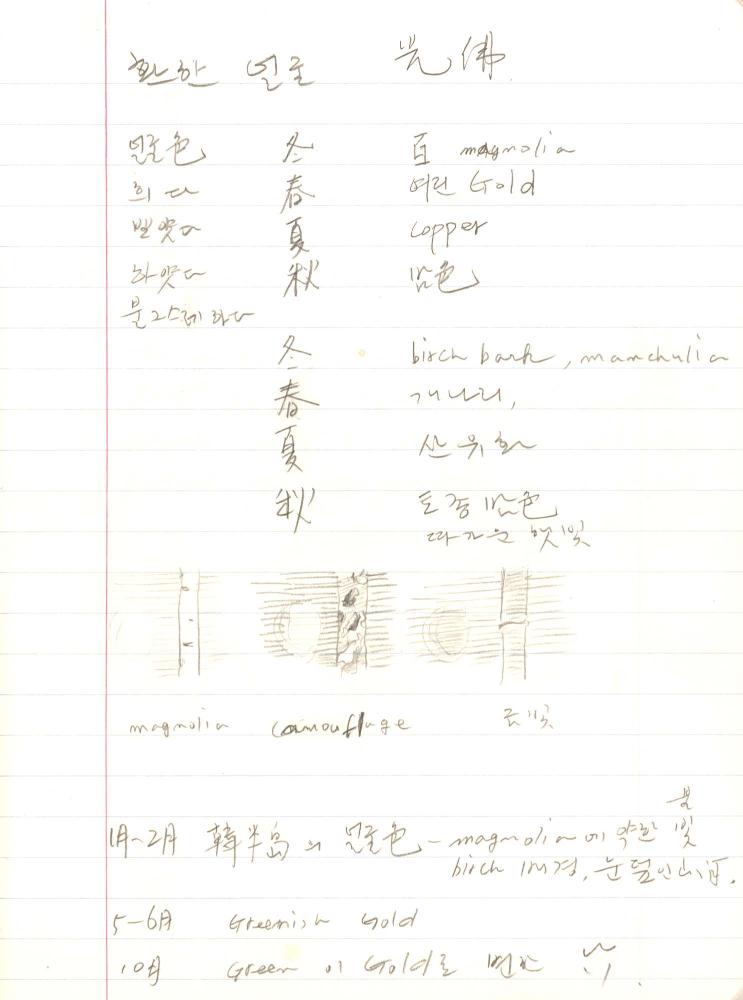 환한 얼굴 光佛
얼굴色 冬 百 magnolia
희다 春 여린 Gold
빨갛다 夏 copper
하얗다 秋 밤色
불그스레하다
冬 birch bark, manchulia
春 개나리,
夏
秋 토종 밤色
따가운 햇빛
magnolia camouflage 금빛
붉
1月~2月 韓半島의 얼굴色 - magnolia에 약한 빛
birch 배경, 눈덮인 山河.
5-6月 Greenish Gold
10月 Green이 Gold로 변한